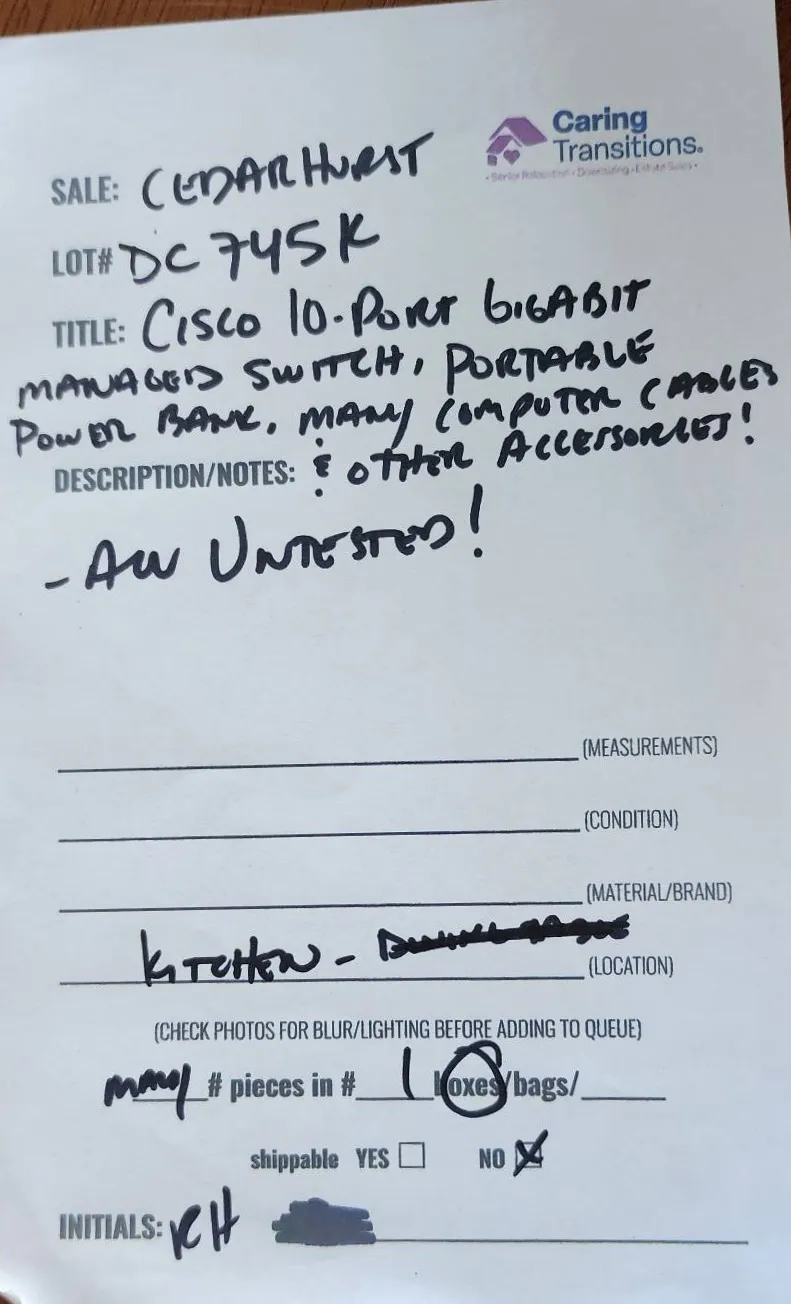 Caring
Transitions.
• Senior Relocation • Downsizing • Estate Sales •
SALE: CEDARHURST
LOT# DC745K
TITLE: CISCO 10-PORT GIGABIT
MANAGED SWITCH, PORTABLE
POWER BANK, MANY COMPUTER CABLES
DESCRIPTION/NOTES: & OTHER ACCESSORIES!
- ALL UNTESTED!
(MEASUREMENTS)
(CONDITION)
(MATERIAL/BRAND)
KITCHEN - (LOCATION)
(CHECK PHOTOS FOR BLUR/LIGHTING BEFORE ADDING TO QUEUE)
many # pieces in # 1 boxes/bags/
shippable YES NO
INITIALS: KH